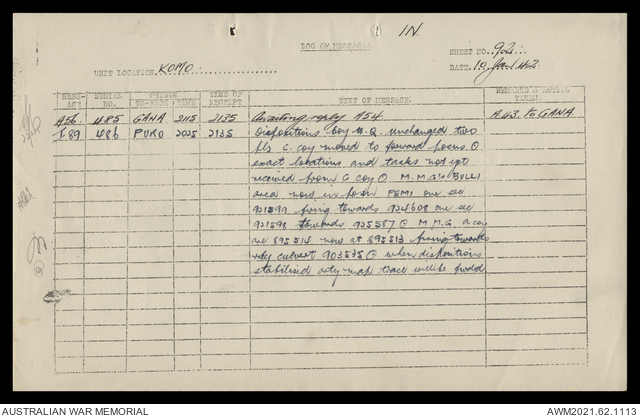 IN.
LOG OF MESSAGES
SHEET NO. 92
UNIT LOCATION. KOMO
DATE. 10 Jan 42
MESSAGE SERIAL NO. ORIGIN TO-FROM TIME TIME OF RECEIPT TEXT OF MESSAGE. REMARKS & ACTION TAKEN:
A56 485 GANA 2115 2135 Awaiting reply A54 A.43. to GANA.
I.89 486 PURO 2025 2135 Dispositions Coy H.Q. unchanged two
pls C. coy moved to forward posns O
exact locations and tasks not yet
received from C coy O M.M.G's BULLI
area now in posn FEMI one sec
921599 firing towards 924608 one sec
921598 towards 925587 O M M.G. A coy
are 895514 now at 895513 firing towards
rly culvert 903535 O when dispositions
stabilised arty map trace will be
AUSTRALIAN WAR MEMORIAL
AWM2021.62.1113